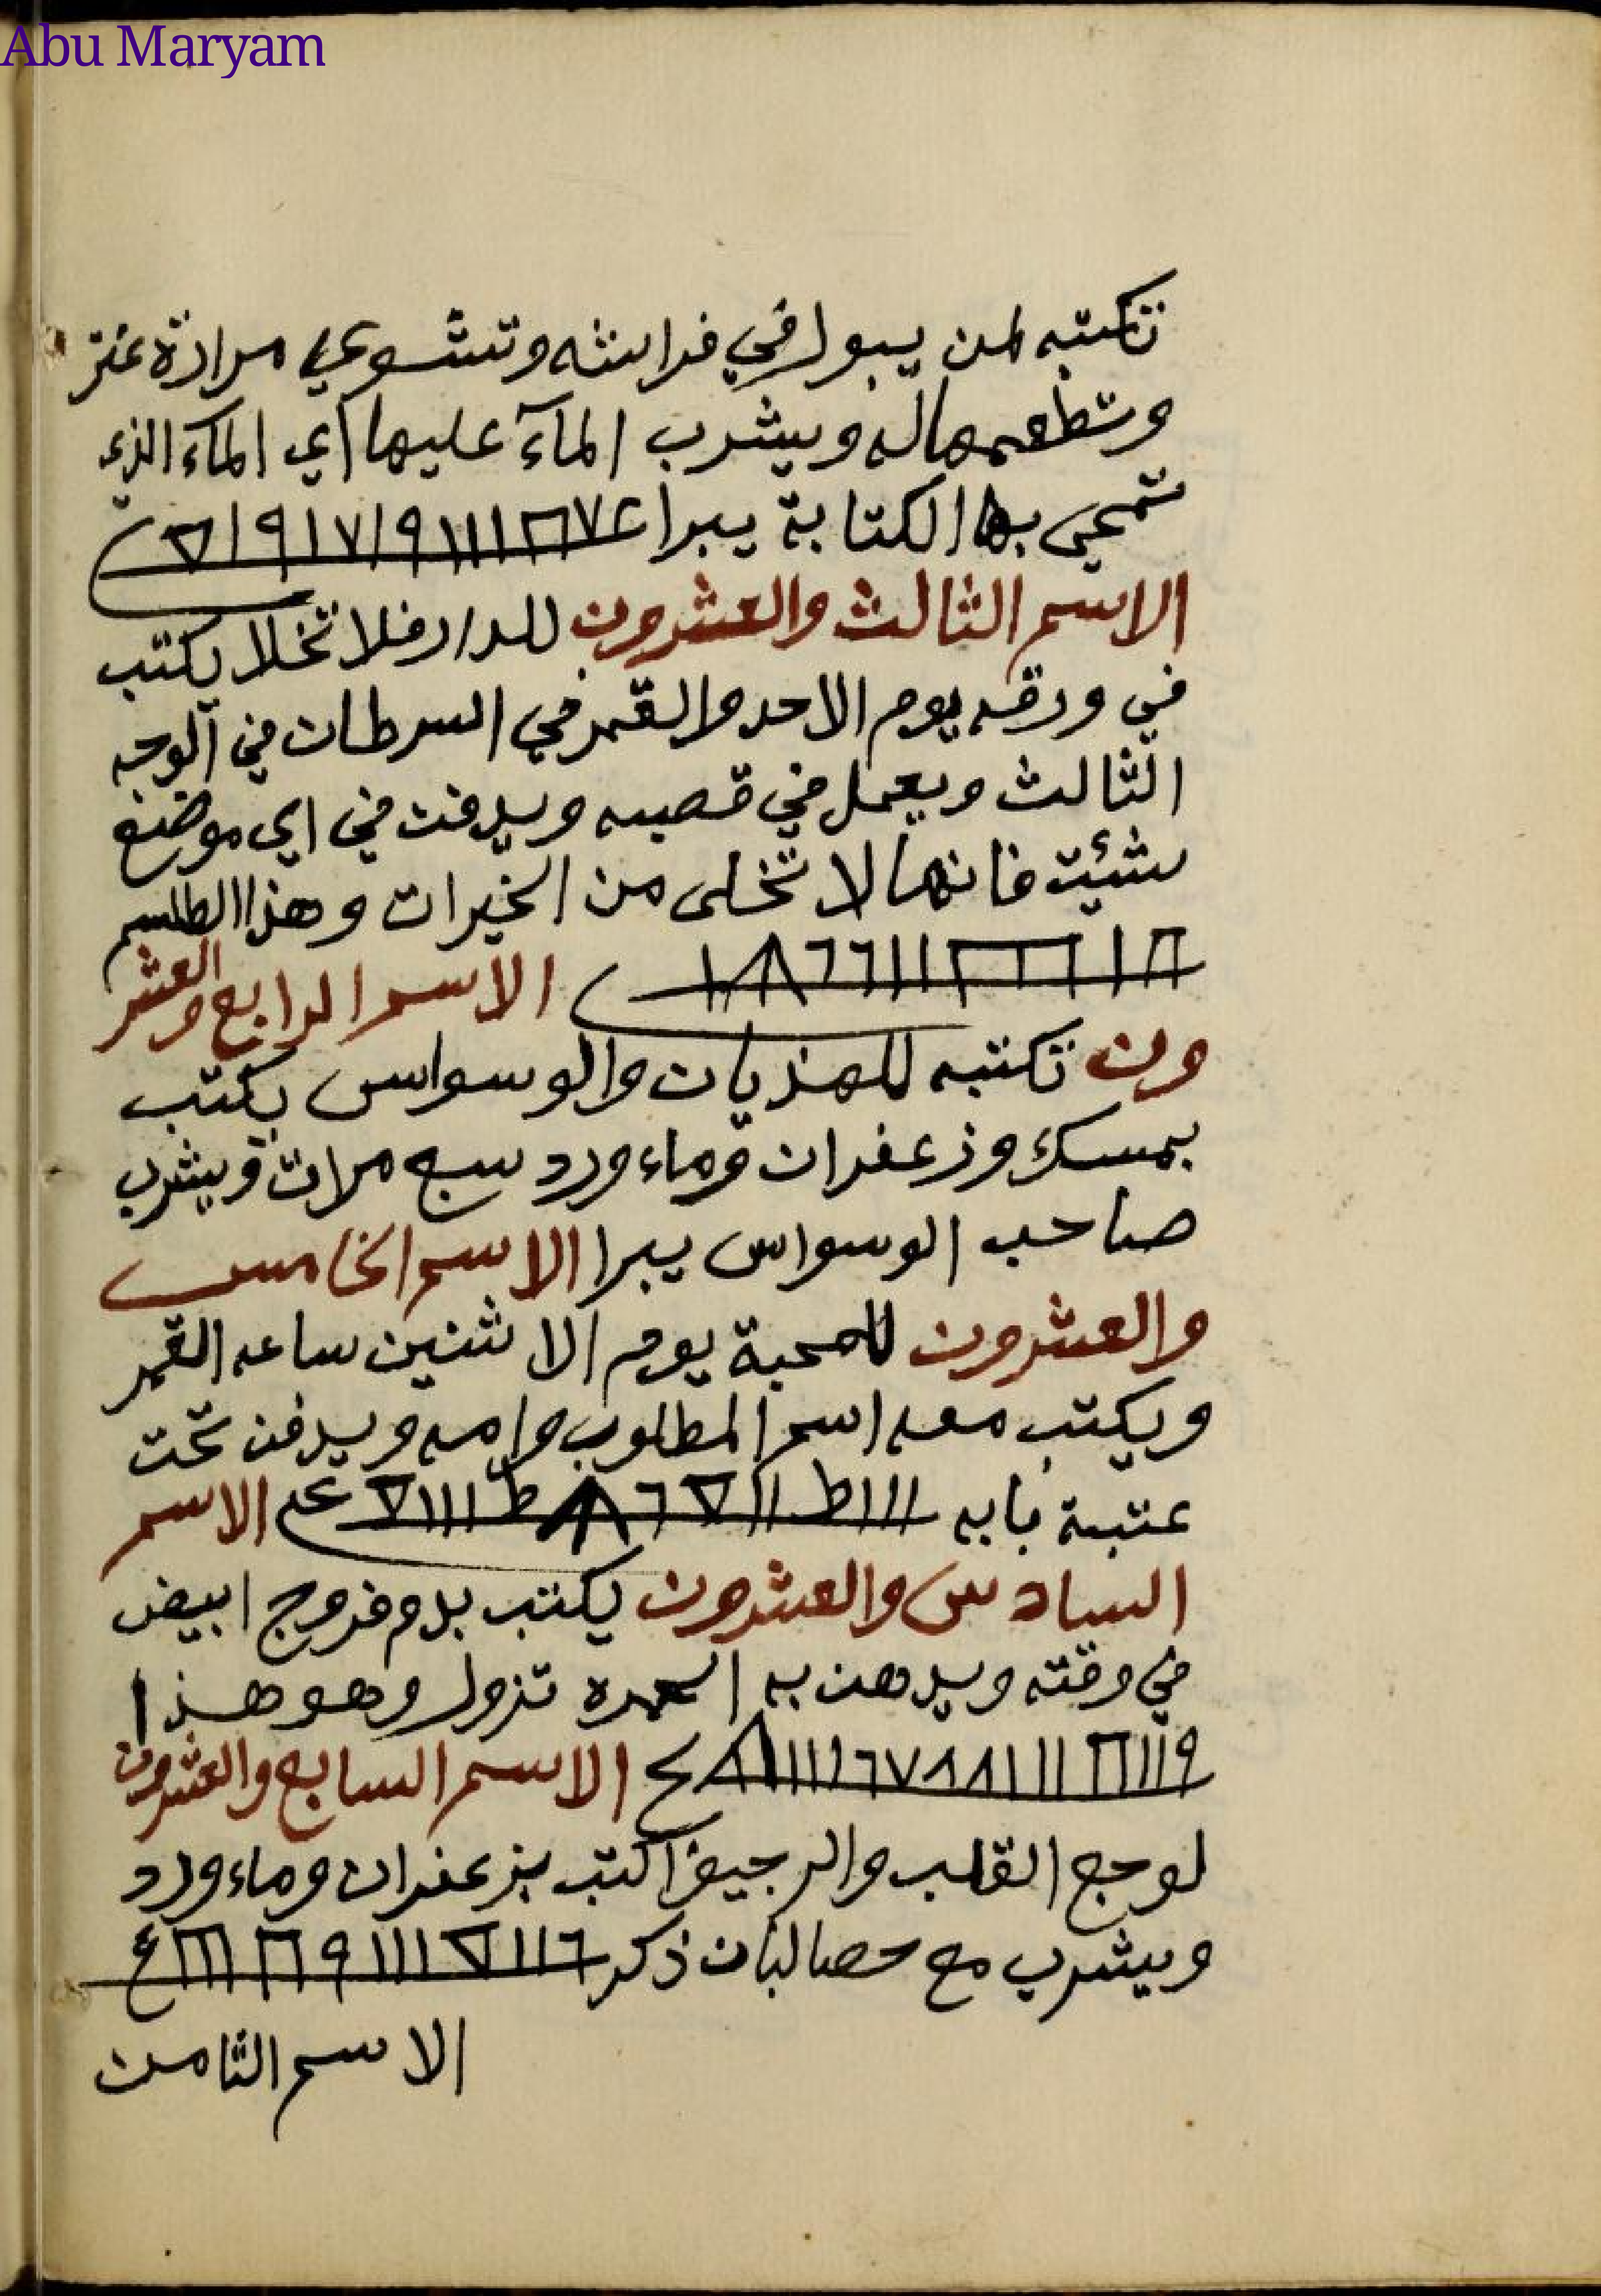 Abu Maryam
تكتبه لمن يبول في فراشه وتشوي مرارة عنز
وتطعمها له ويشرب المآء عليها اي المآء الذي
تمحى بها الكتابة يبرا
الاسم الثالث والعشرون للدار فلا تخلا يكتب
في ورقه يوم الاحد والقمر في السرطان في الوجه
الثالث ويعمل في قصبه ويدفن في اي موضع
شئت فانها لا تخلى من الخيرات وهذا الطلسم
الاسم الرابع والعشر
ون تكتبه للهذيان والوسواس يكتب
بمسك وزعفران وماء ورد سبع مرات ويشرب
صاحب الوسواس يبرا الاسم الخامس
والعشرون للمحبة يوم الاثنين ساعه القمر
ويكتب معه اسم المطلوب وامه ويدفن تحت
عتبة بابه الاسم
السادس والعشرون يكتب بدم فروج ابيض
في وقته ويدهن به تزول وهو هذا
الاسم السابع والعشرون
لوجع القلب والرجيف اكتب بزعفران وماء ورد
ويشرب مع حصالبان ذكر
الاسم الثامن